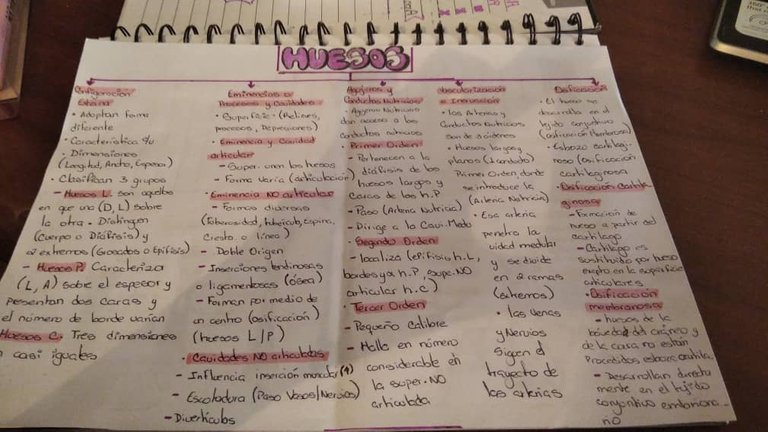 HUESOS
Configuración
Externa
• Adoptan forma
diferente
• Característica
• Dimensiones
(Longitud, Ancho, Espesor)
• Clasifican 3 grupos
- Huesos L. son aquellos
en que una (D, L) sobre
la otra. Distingen
(Cuerpo o Diáfisis) y
2 extremos (Grosados o Epífisis)
- Huesos P. Caracteriza
(L, A) sobre el espesor y
pesentan dos caras y
el número de borde varían
Huesos C. Tres dimensiones
casi iguales
Eminencias o
Procesos y Cavidades
• Superficie - (Relieves,
procesos, Depresiones)
• Eminencia y Cavidad
articular
- Super. unen los huesos
- Forma varia (articulación)
• Eminencia NO articular
- Formas diversas
(Tuberosidad, tubérculo, espina,
Cresta o línea)
- Doble Origen
- Inserciones tendinosas
o ligamentosas (ósea)
- Forman por medio de
un centro (osificación)
(huesos L/P)
• Cavidades NO articulares
- Influencia inserción muscular
- Escotadura (Paso Vasos/Nervios)
- Divertículos
Agujeros y
Conductos Nutricios
- Agujeros Nutricios
dan acceso a los
Conductos nutricios
• Primer Orden
- Pertenecen a la
diáfisis de los
huesos largos y
Caras de los h.P
- Paso (Arteria Nutricia)
- Dirige a la Cavi. Medo
• Segundo Orden
- localiza (epífisis h.L,
bordes h.P, super. NO
articular h.C)
• Tercer Orden
- Pequeño Calibre
- Halla en número
considerable en
la super. NO
articulada
Vascularización
e Inervación
• las Arterias y
Conductos Nutricios
son de 3 órdenes
• Huesos largos y
planos (1 conducto)
Primer Orden donde
se introduce la
(Arteria Nutricia)
• Esa arteria
penetra la
vidad medular
y se divide
en 2 ramas
(extremos)
• las Venas
y Nervios
Sigen el
trayecto de
las arterias
Osificación
• El hueso se
desarrolla en el
tejido conjuntivo
(osificación Membranosa)
• Esbozo cartilagi-
noso (osificación
cartilaginosa
• Osificación Cartila-
ginosa
- Formación de
hueso a partir del
cartílago
- Cartílago es
sustituido por hueso
en la superficie
articulares
• Osificación
membranosa
- huesos de la
bóveda del cráneo y
de la cara no están
Procedidos
- Desarrollan directa
mente en el tejido
conjuntivo embriona-